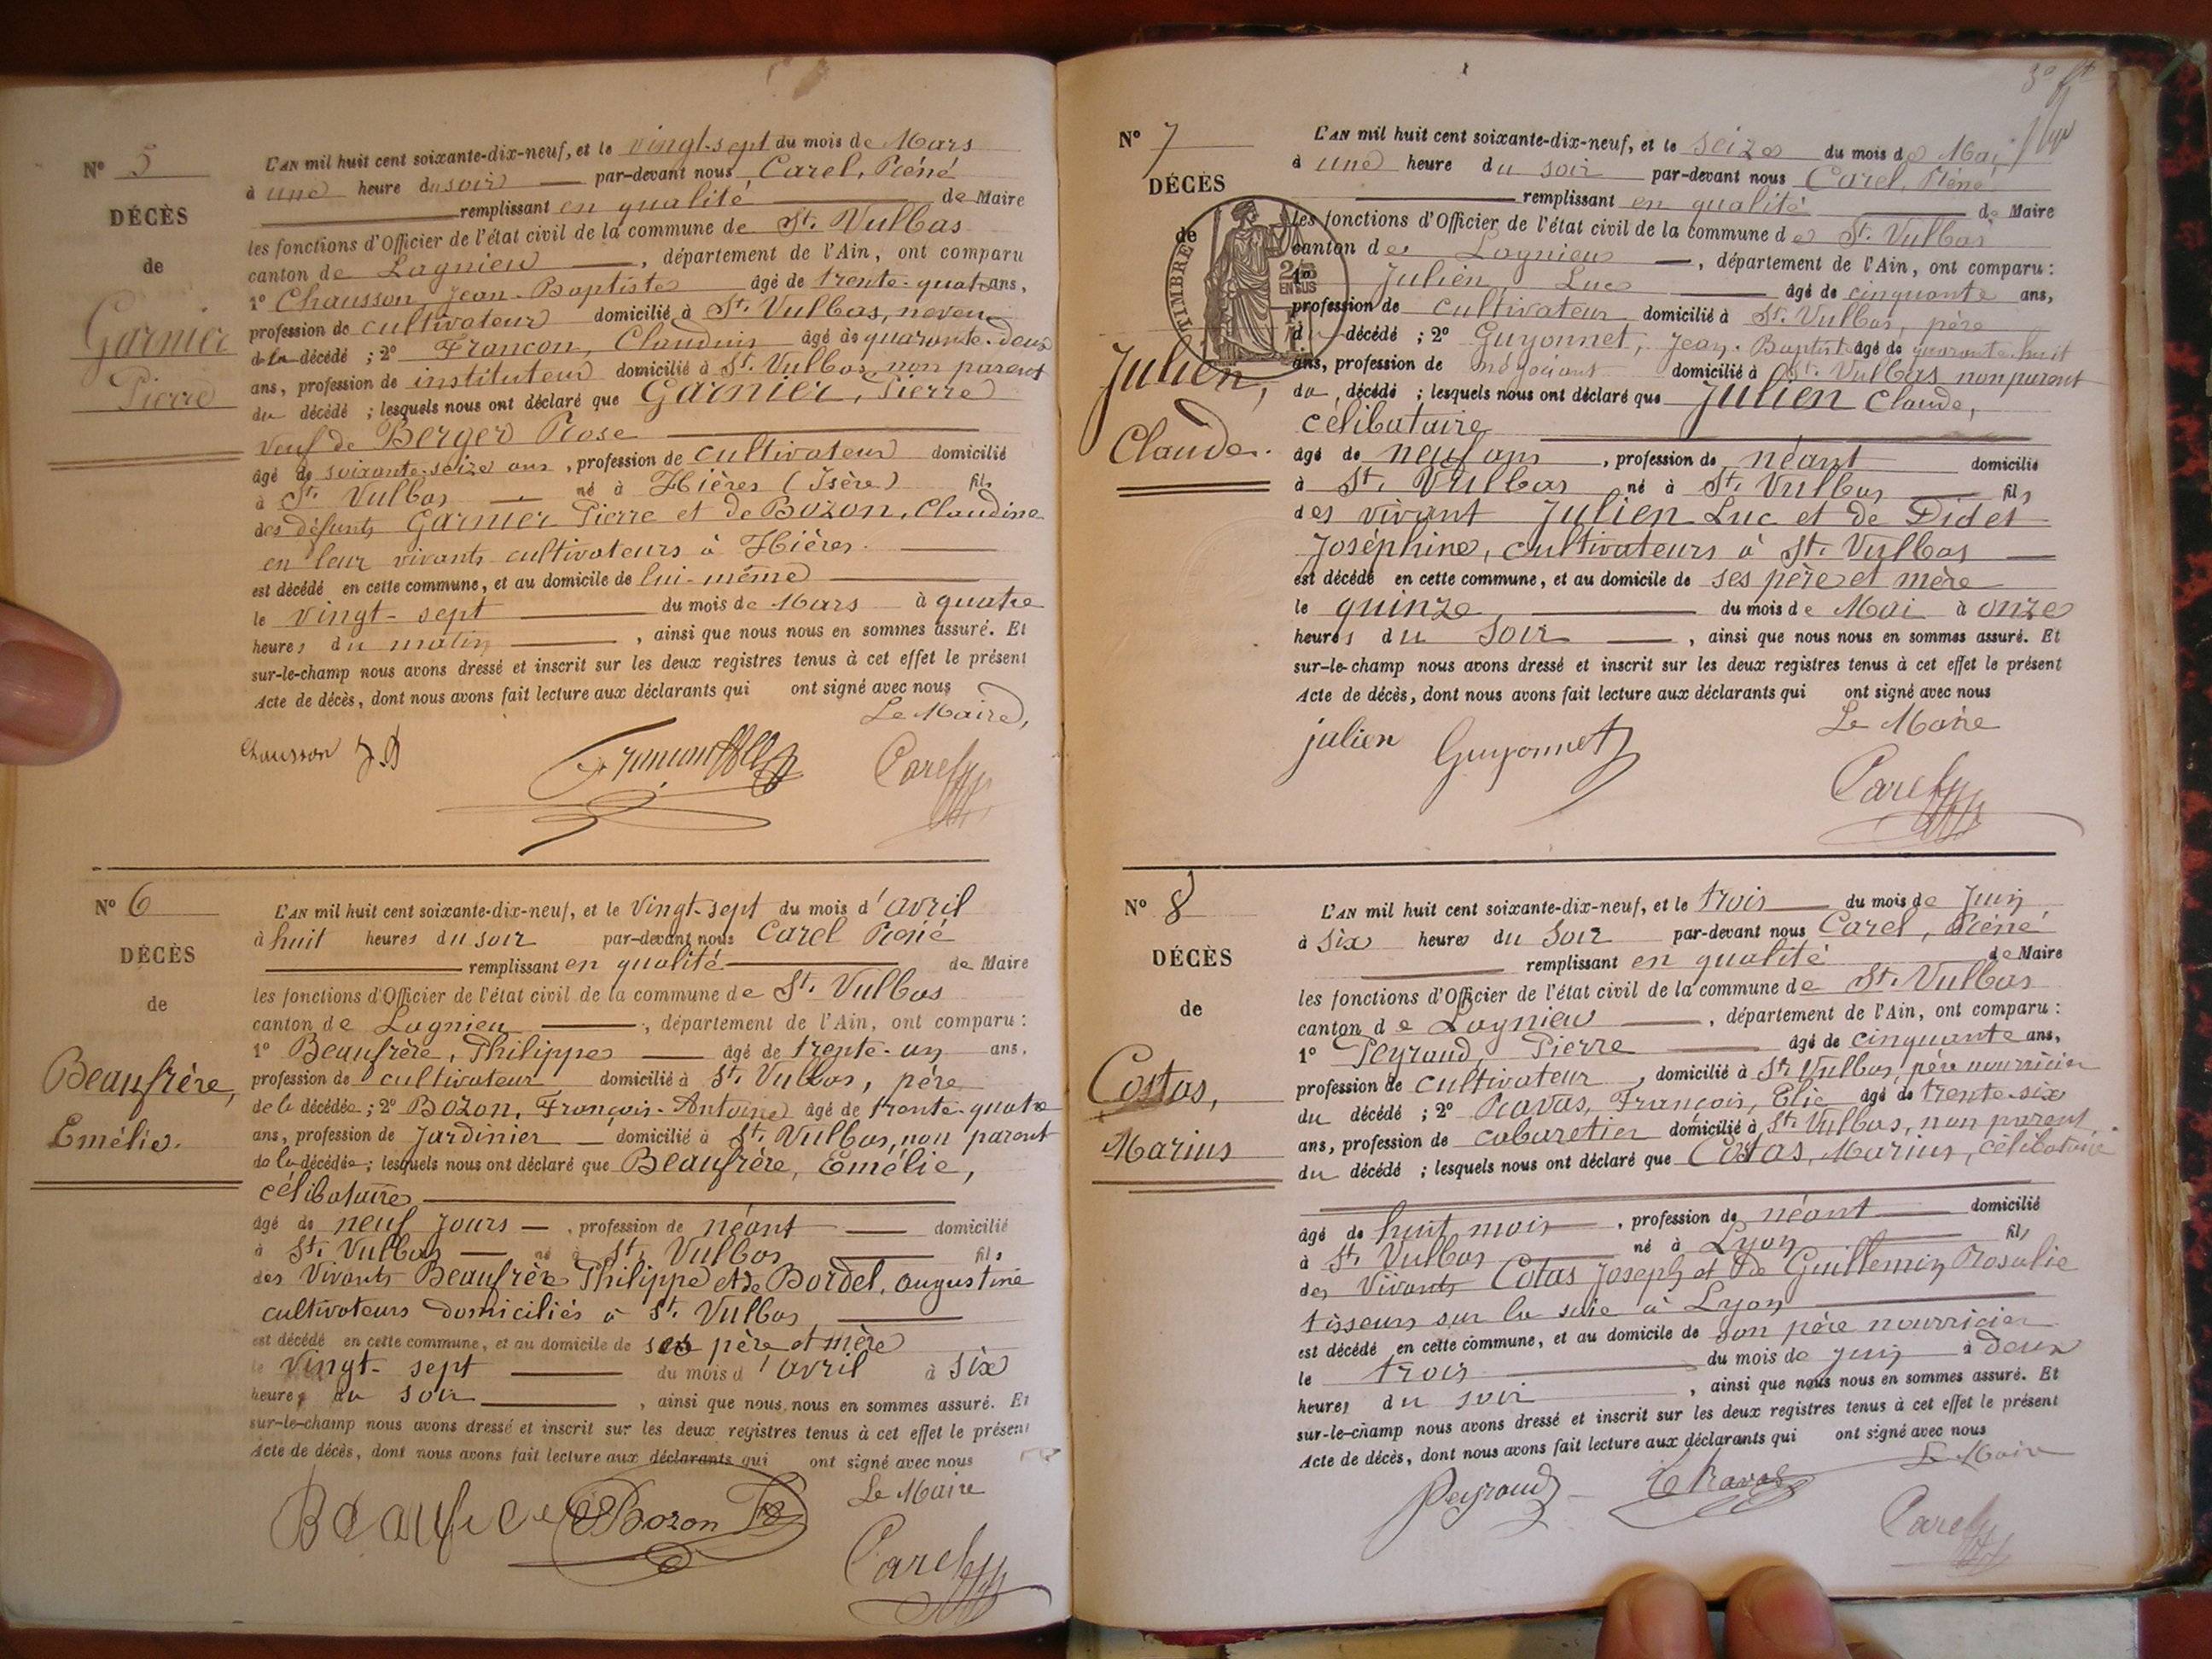 N° 5
DÉCÈS
de
Garnier
Pierre
L'AN mil huit cent soixante-dix-neuf, et le vingt-sept du mois de Mars
à une heure du soir par-devant nous Carel, Réné
remplissant en qualité de Maire
les fonctions d'Officier de l'état civil de la commune de St. Vulbas
canton de Lagnieu, département de l'Ain, ont comparu
1° Chausson, Jean-Baptiste âgé de trente-quatre ans,
profession de cultivateur domicilié à St. Vulbas, neveu
du décédé ; 2° Francon, Claudius âgé de quarante-deux
ans, profession de instituteur domicilié à St. Vulbas, non parent
du décédé ; lesquels nous ont déclaré que Garnier, Pierre
veuf de Berger Rose
âgé de soixante-seize ans, profession de cultivateur domicilié
à St. Vulbas né à Hières (Isère) fils
des défunts Garnier Pierre et de Bozon, Claudine
en leur vivants cultivateurs à Hières.
est décédé en cette commune, et au domicile de lui-même
le vingt-sept du mois de Mars à quatre
heures du matin, ainsi que nous nous en sommes assuré. Et
sur-le-champ nous avons dressé et inscrit sur les deux registres tenus à cet effet le présent
Acte de décès, dont nous avons fait lecture aux déclarants qui ont signé avec nous
Le Maire,
Chausson J B Francon Carel
N° 6
DÉCÈS
de
Beaufrère,
Emélie.
L'AN mil huit cent soixante-dix-neuf, et le vingt-sept du mois d'avril
à huit heures du soir par-devant nous Carel Réné
remplissant en qualité de Maire
les fonctions d'Officier de l'état civil de la commune de St. Vulbas
canton de Lagnieu, département de l'Ain, ont comparu :
1° Beaufrère, Philippe âgé de trente-un ans,
profession de cultivateur domicilié à St. Vulbas, père
de la décédée ; 2° Bozon, François-Antoine âgé de trente-quatre
ans, profession de Jardinier domicilié à St. Vulbas, non parent
de la décédée ; lesquels nous ont déclaré que Beaufrère, Emélie,
célibataire
âgé de neuf jours, profession de néant domicilié
à St. Vulbas né à St. Vulbas fils
des Vivants Beaufrère Philippe et de Bordel, augustine
cultivateurs domiciliés à St. Vulbas
est décédé en cette commune, et au domicile de ses père et mère
le vingt-sept du mois d'avril à six
heures du soir, ainsi que nous nous en sommes assuré. Et
sur-le-champ nous avons dressé et inscrit sur les deux registres tenus à cet effet le présent
Acte de décès, dont nous avons fait lecture aux déclarants qui ont signé avec nous
Le Maire
Beaufrere Bozon Carel
N° 7
DÉCÈS
de
TIMBRE
Julien,
Claude.
L'AN mil huit cent soixante-dix-neuf, et le seize du mois de Mai
à une heure du soir par-devant nous Carel, Réné
remplissant en qualité de Maire
les fonctions d'Officier de l'état civil de la commune de St. Vulbas
canton de Lagnieu, département de l'Ain, ont comparu :
1° Julien, Luc âgé de cinquante ans,
profession de cultivateur domicilié à St. Vulbas, père
du décédé ; 2° Guyonnet, Jean-Baptiste âgé de quarante-huit
ans, profession de négociant domicilié à St. Vulbas non parent
du décédé ; lesquels nous ont déclaré que Julien Claude,
célibataire
âgé de neuf ans, profession de néant domicilié
à St. Vulbas né à St. Vulbas fils
des vivant Julien Luc et de Didet
Joséphine, cultivateurs à St. Vulbas
est décédé en cette commune, et au domicile de ses père et mère
le quinze du mois de Mai à onze
heures du soir, ainsi que nous nous en sommes assuré. Et
sur-le-champ nous avons dressé et inscrit sur les deux registres tenus à cet effet le présent
Acte de décès, dont nous avons fait lecture aux déclarants qui ont signé avec nous
Le Maire
julien Guyonnet Carel
N° 8
DÉCÈS
de
Costas,
Marius
L'AN mil huit cent soixante-dix-neuf, et le trois du mois de Juin
à six heures du soir par-devant nous Carel, Réné
remplissant en qualité de Maire
les fonctions d'Officier de l'état civil de la commune de St. Vulbas
canton de Lagnieu, département de l'Ain, ont comparu :
1° Peyraud, Pierre âgé de cinquante ans,
profession de cultivateur, domicilié à St. Vulbas, père nourricier
du décédé ; 2° Ravas, François, Elie âgé de trente-six
ans, profession de cabaretier domicilié à St. Vulbas, non parent
du décédé ; lesquels nous ont déclaré que Costas, Marius, célibataire
âgé de huit mois, profession de néant domicilié
à St. Vulbas né à Lyon fils
des Vivants Cotas Joseph et de Guillemin Rosalie
tisseurs sur la soie à Lyon
est décédé en cette commune, et au domicile de son père nourricier
le trois du mois de juin à deux
heures du soir, ainsi que nous nous en sommes assuré. Et
sur-le-champ nous avons dressé et inscrit sur les deux registres tenus à cet effet le présent
Acte de décès, dont nous avons fait lecture aux déclarants qui ont signé avec nous
Le Maire
Peyraud Ravas Carel